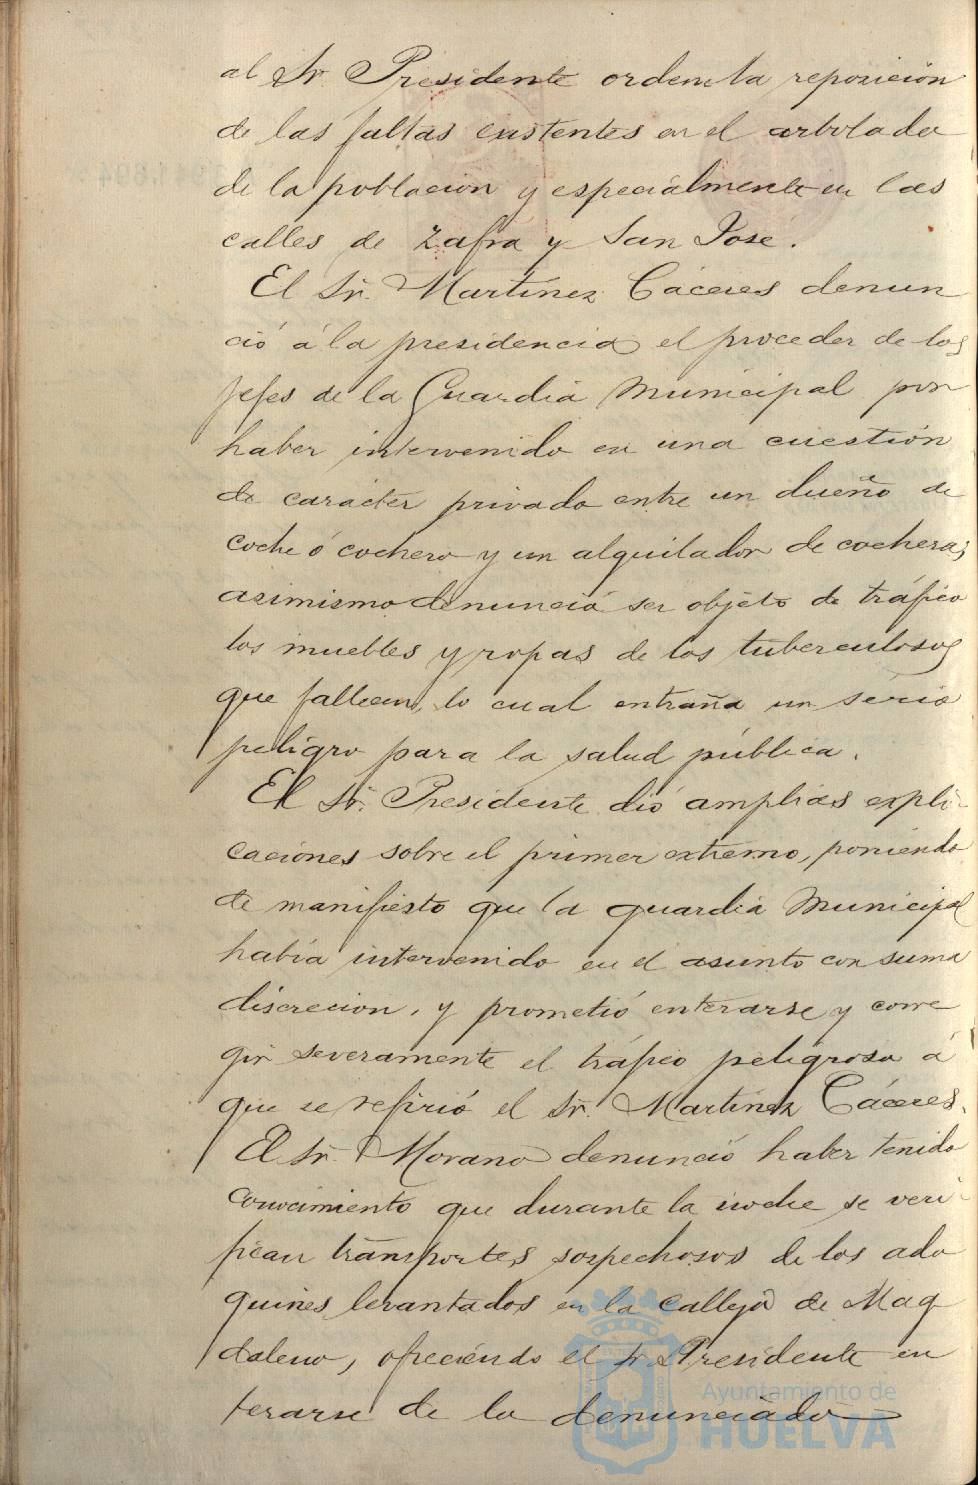 al Sr. Presidente ordene la reposición
de las faltas existentes en el arbolado
de la poblacion y especiálmente en las
calles de Zafra y San José.
El Sr. Martínez Cáceres denun
ció á la presidencia el proceder de los
Jefes de la Guardia Municipal por
haber intervenido en una cuestión
de carácter privado entre un dueño de
coche ó cochero y un alquilador de cochera;
asimismo denunció ser objeto de tráfico
los muebles y ropas de los tuberculosos
que fallecen, lo cual entraña un sério
peligro para la salud pública.
El Sr. Presidente dió amplias expli-
caciones sobre el primer extremo, poniendo
de manifiesto que la guardia Municipal
había intervenido en el asunto con suma
discrecion, y prometió enterarse y corre
gir severamente el tráfico peligroso á
que se refirió el Sr. Martínez Cáceres.
El Sr. Morano denunció haber tenido
conocimiento que durante la noche se veri-
fican transportes sospechosos de los ado
quines levantados en la calleja de Mag
daleno, ofreciendo el Sr. Presidente en
terarse de lo denunciado
Ayuntamiento de
HUELVA